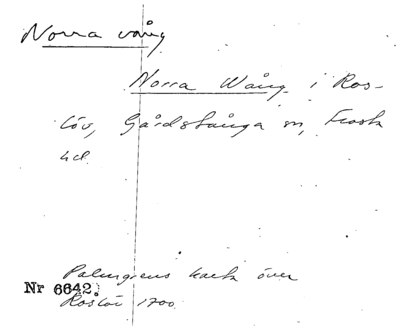 Norra vång
Norra Wång i Ros-
löv, Gårdstånga sn, Frosta
hd.
Palmgrens karta över
Nr 6642.
Roslöv 1700